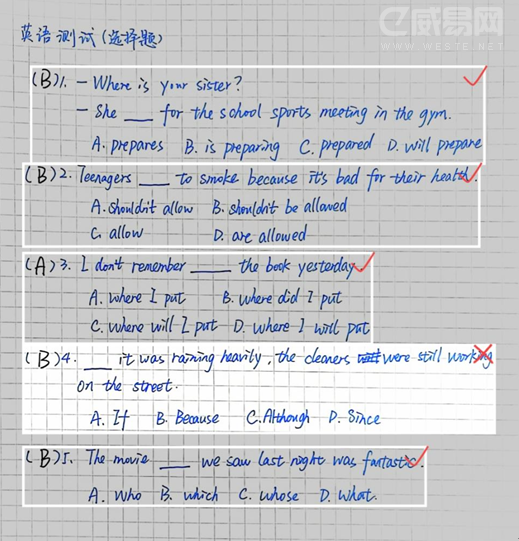 威易网
WWW.WEBTE.NET
英语测试(选择题)
(B)1. - Where is your sister?
- She ___ for the school sports meeting in the gym.
A. prepares B. is preparing C. prepared D. will prepare
(B)2. Teenagers ___ to smoke because it's bad for their health.
A. shouldn't allow B. shouldn't be allowed
C. allow D. are allowed
(A)3. I don't remember ____ the book yesterday.
A. where I put B. where did I put
C. where will I put D. where I will put
(B)4. ___ it was raining heavily, the cleaners were still working
on the street.
A. If B. Because C. Although D. Since
(B)5. The movie ___ we saw last night was fantastic.
A. who B. which C. whose D. what.